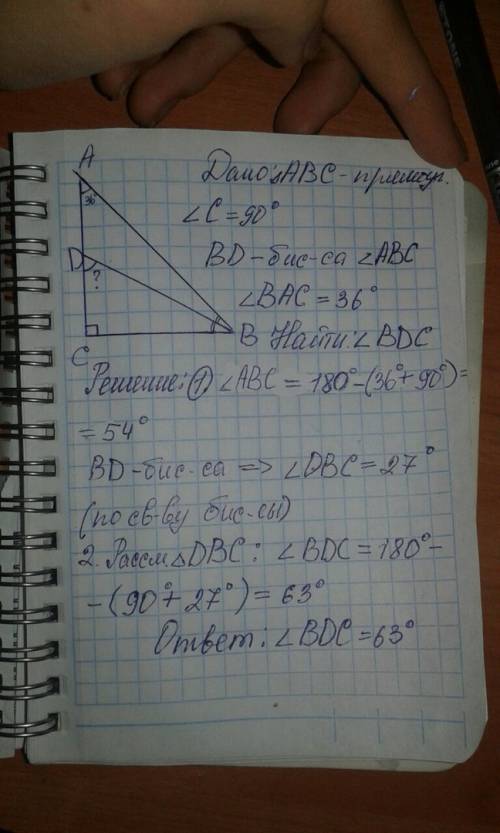 A
Дано: △ABC - прямоуг.
36°
∠C = 90°
D
BD - бис-са ∠ABC
?
∠BAC = 36°
B
Найти: ∠BDC
C
Решение: ① ∠ABC = 180° - (36° + 90°) =
= 54°
BD - бис-са => ∠DBC = 27°
(по св-ву бис-сы)
2. Рассм △DBC: ∠BDC = 180° -
- (90° + 27°) = 63°
Ответ: ∠BDC = 63°